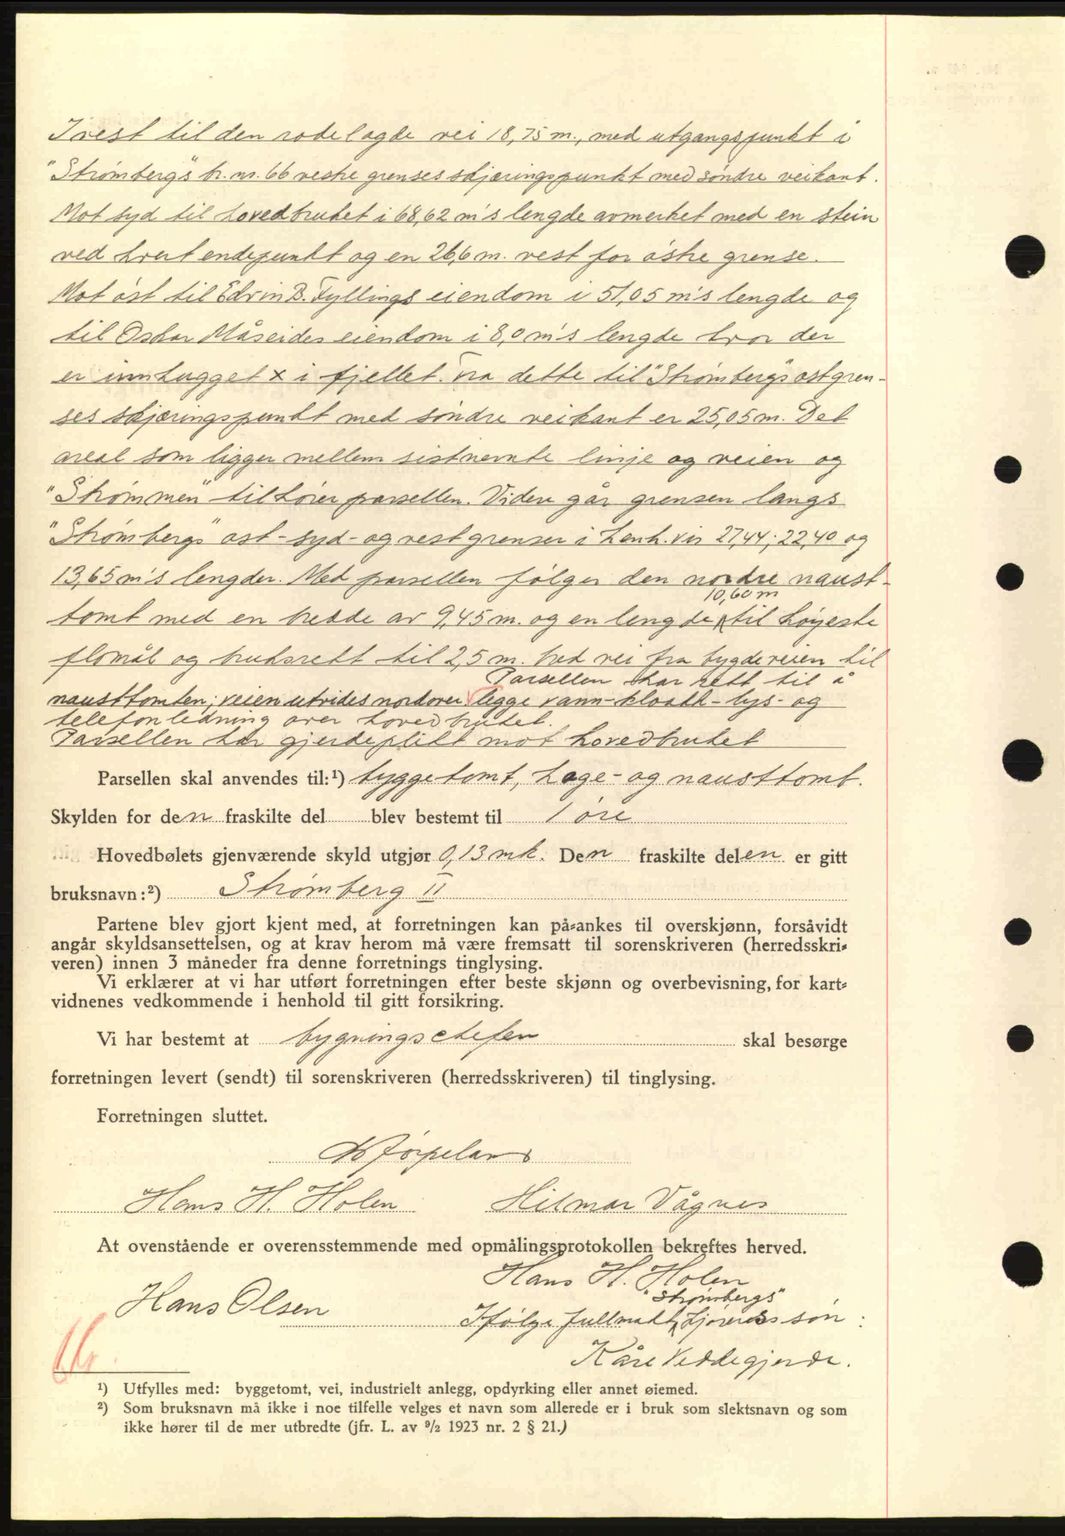 I vest til den rodelagde vei 18,75 m., med utgangspunkt i
"Strømbergs" br. nr. 66 vestre grenses skjæringspunkt med søndre veikant.
Mot syd til hovedbruket i 68,62 m's lengde avmerket med en stein
ved hvert endepunkt og en 26,6 m. vest for østre grense.
Mot øst til Edvin B. Fyllings eiendom i 51,05 m's lengde og
til Oskar Måseides eiendom i 8,0 m's lengde hvor der
er innhugget x i fjellet. Fra dette til "Strømbergs" østgren-
ses skjæringspunkt med søndre veikant er 25,05 m. Det
areal som ligger mellem sistnevnte linje og veien og
"Strømmen" tilhører parsellen. Videre går grensen langs
"Strømbergs" øst- syd- og vestgrenser i henh.vis 27,44; 22,40 og
13,65 m's lengder. Med parsellen følger den nordre naust-
10,60 m
tomt med en bredde av 9,45 m. og en lengde til høyeste
flomål og bruksrett til 2,5 m. bred vei fra bygdeveien til
Parsellen har rett til å
nausttomten; veien utvides nordover. legge vann- kloakk- lys- og
telefonledning over hovedbruket.
Parsellen har gjerdeplikt mot hovedbruket
Parsellen skal anvendes til:¹) byggetomt, hage- og nausttomt.
Skylden for den fraskilte del blev bestemt til 1 øre
Hovedbølets gjenværende skyld utgjør 0,13 mk. Den fraskilte delen er gitt
bruksnavn:²) Strømberg II
Partene blev gjort kjent med, at forretningen kan på-ankes til overskjønn, forsåvidt
angår skyldsansettelsen, og at krav herom må være fremsatt til sorenskriveren (herredsskri-
veren) innen 3 måneder fra denne forretnings tinglysing.
Vi erklærer at vi har utført forretningen efter beste skjønn og overbevisning, for kart-
vidnenes vedkommende i henhold til gitt forsikring.
Vi har bestemt at bygningschefen skal besørge
forretningen levert (sendt) til sorenskriveren (herredsskriveren) til tinglysing.
Forretningen sluttet.
Jørpeland
Hans H. Holen Hilmar Vågnes
At ovenstående er overensstemmende med opmålingsprotokollen bekreftes herved.
Hans H. Holen
"Strømbergs"
Hans Olsen Ifølge fullmakt, Hjørenes søn:
Kåre Veddegjerde.
¹) Utfylles med: byggetomt, vei, industrielt anlegg, opdyrking eller annet øiemed.
²) Som bruksnavn må ikke i noe tilfelle velges et navn som allerede er i bruk som slektsnavn og som
ikke hører til de mer utbredte (jfr. L. av 9/2 1923 nr. 2 § 21.)